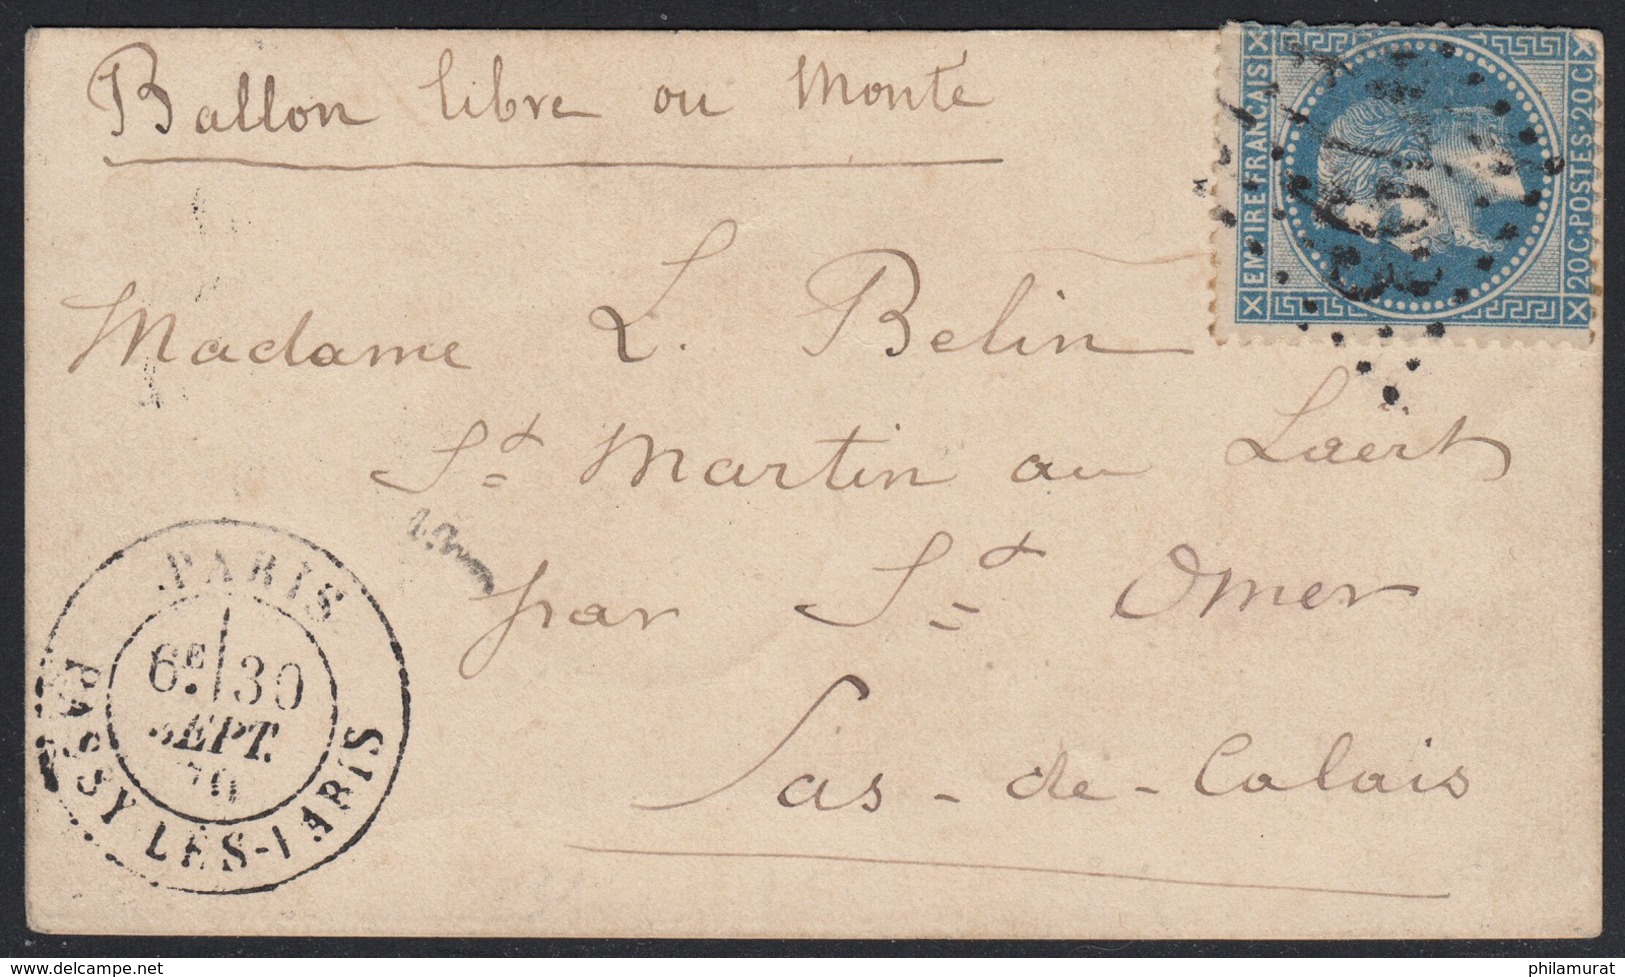 Ballon libre ou Monté
EMPIRE FRANCAIS
20C·POSTES·20C
Madame L. Belin
St Martin au Laërt
par St Omer
Pas-de-Calais
PARIS
6E/30
SEPT.
70
PASSY-LES-PARIS
philamurat